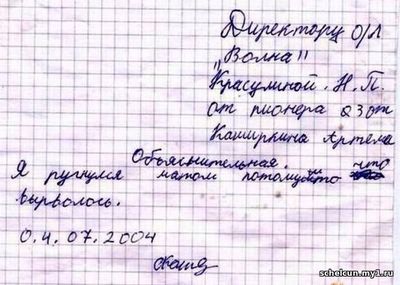 Директору о/л
"Волна"
Красулиной. Н.П.
от пионера 23от
Каширкина Артема
Объяснительная.
Я ругнулся матом потомуйто что
вырволось.
0.4.07.2004
schelcun.my1.ru